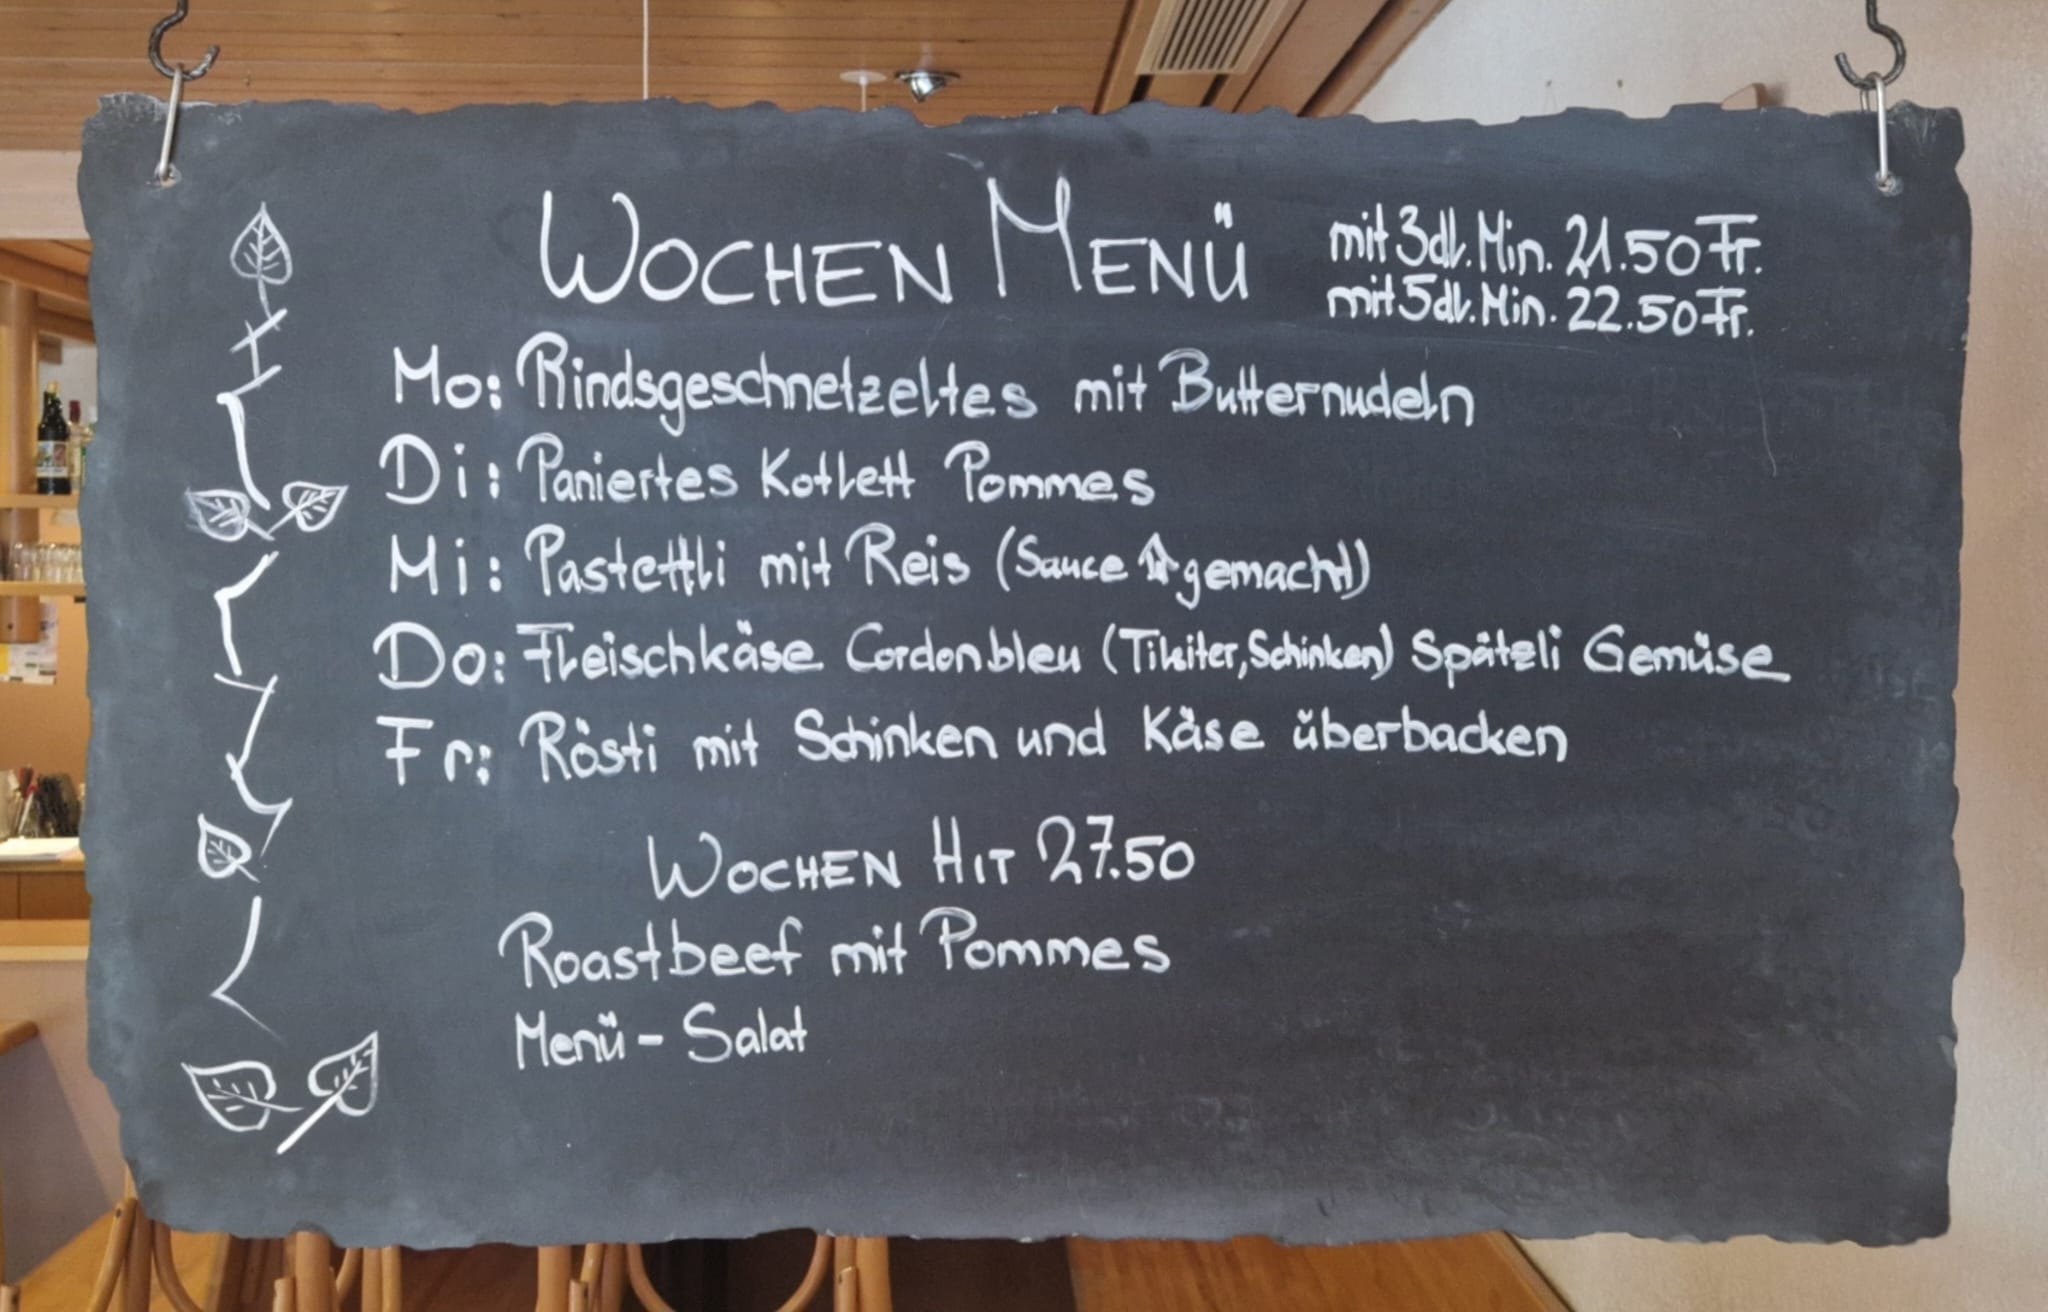 WOCHEN MENÜ
mit 3dl. Min. 21.50 Fr.
mit 5dl. Min. 22.50 Fr.
Mo: Rindsgeschnetzeltes mit Butternudeln
Di: Paniertes Kotlett Pommes
Mi: Pastettli mit Reis (Sauce gemacht)
Do: Fleischkäse Cordonbleu (Tilsiter, Schinken) Spätzli Gemüse
Fr: Rösti mit Schinken und Käse überbacken
WOCHEN HIT 27.50
Roastbeef mit Pommes
Menü - Salat